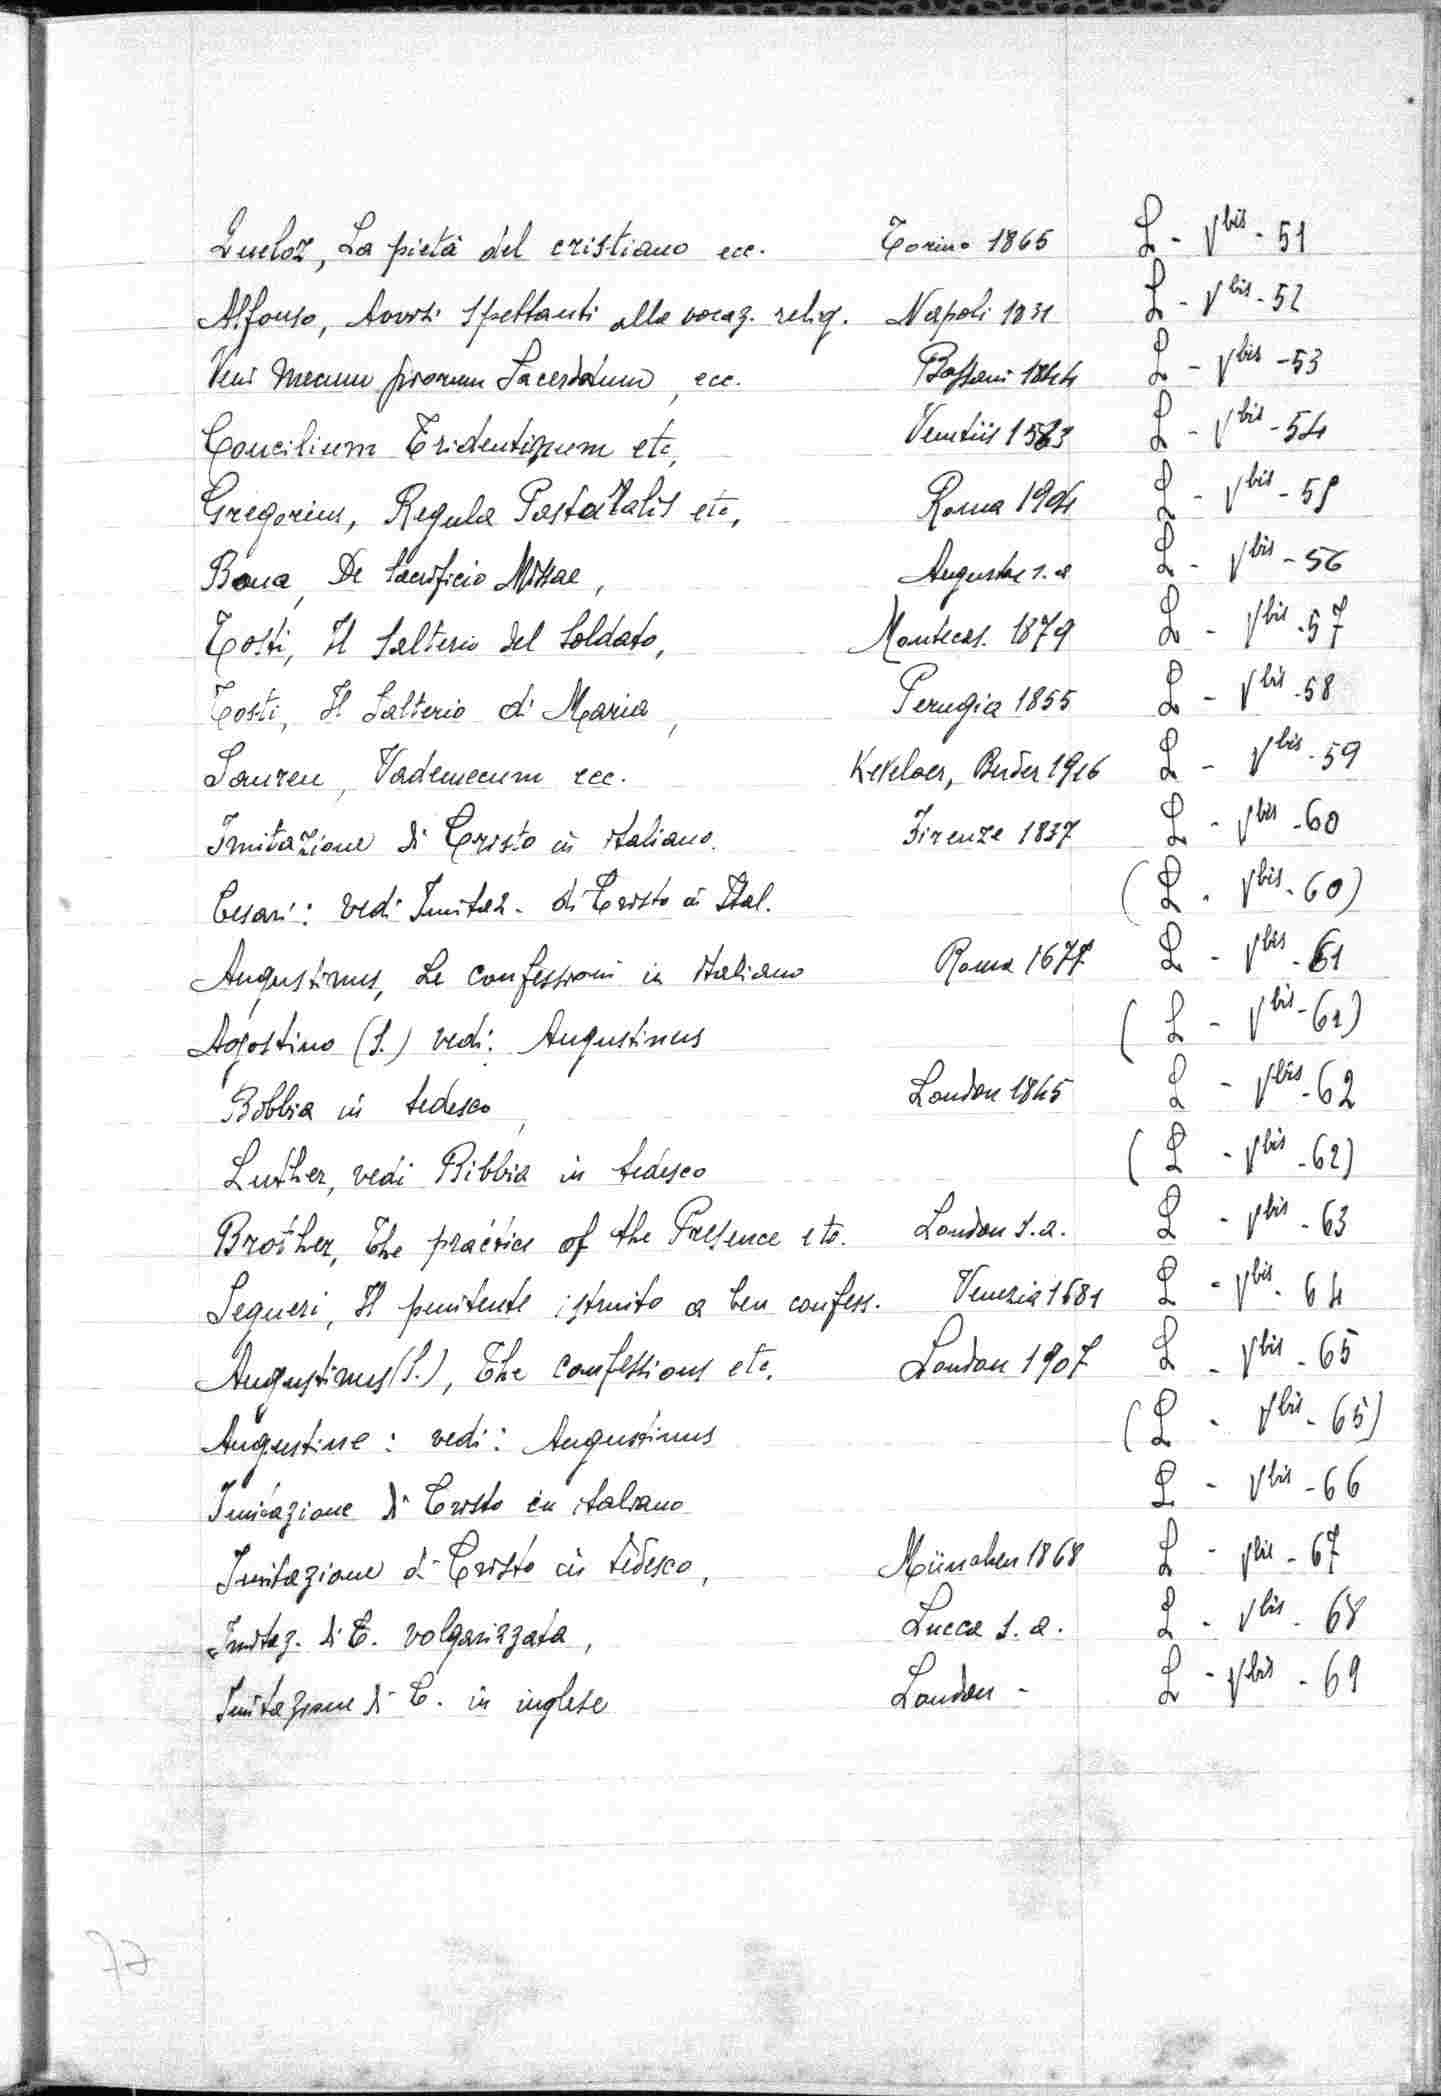 Queloz, La pietà del cristiano ecc. Torino 1865 L - Vbis - 51
Alfonso, Avvisi spettanti alla vocaz. relig. Napoli 1831 L - Vbis - 52
Veni mecum piorum Sacerdotum, ecc. Bassani 1844 L - Vbis - 53
Concilium Tridentinum etc, Venetiis 1563 L - Vbis - 54
Gregorius, Regula Pastoralis etc, Roma 1904 L - Vbis - 55
Bona, De Sacrificio Missae, Augustae s.a L - Vbis - 56
Tosti, Il Salterio del Soldato, Montecas. 1879 L - Vbis - 57
Tosti, Il Salterio di Maria, Perugia 1855 L - Vbis - 58
Lauren, Vademecum ecc. Kevelaer, 1916 L - Vbis - 59
Imitazione di Cristo in italiano. Firenze 1837 L - Vbis - 60
Cesari: vedi Imitaz. di Cristo in Ital. (L - Vbis - 60)
Augustinus, Le confessioni in italiano Roma 1677 L - Vbis - 61
Agostino (S.) vedi: Augustinus (L - Vbis - 61)
Bibbia in tedesco, London 1845 L - Vbis - 62
Luther, vedi Bibbia in tedesco (L - Vbis - 62)
Brother, The practice of the Presence etc. London s.a. L - Vbis - 63
Segneri, Il penitente istruito a ben confess. Venezia 1681 L - Vbis - 64
Augustinus (S.), The confessions etc. London 1907 L - Vbis - 65
Augustine: vedi: Augustinus (L - Vbis - 65)
Imitazione di Cristo in italiano L - Vbis - 66
Imitazione di Cristo in tedesco, München 1868 L - Vbis - 67
Imitaz. di C. volgarizzata, Lucca s.a. L - Vbis - 68
Imitazione di C. in inglese London - L - Vbis - 69